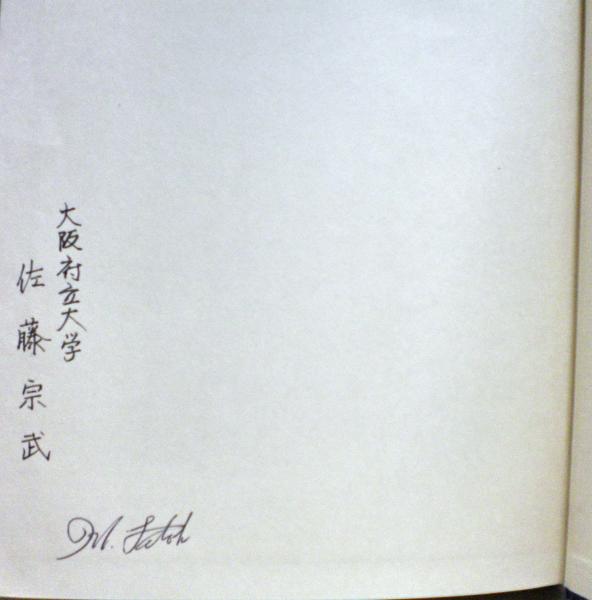 大阪府立大学
佐藤宗武
M. Satoh